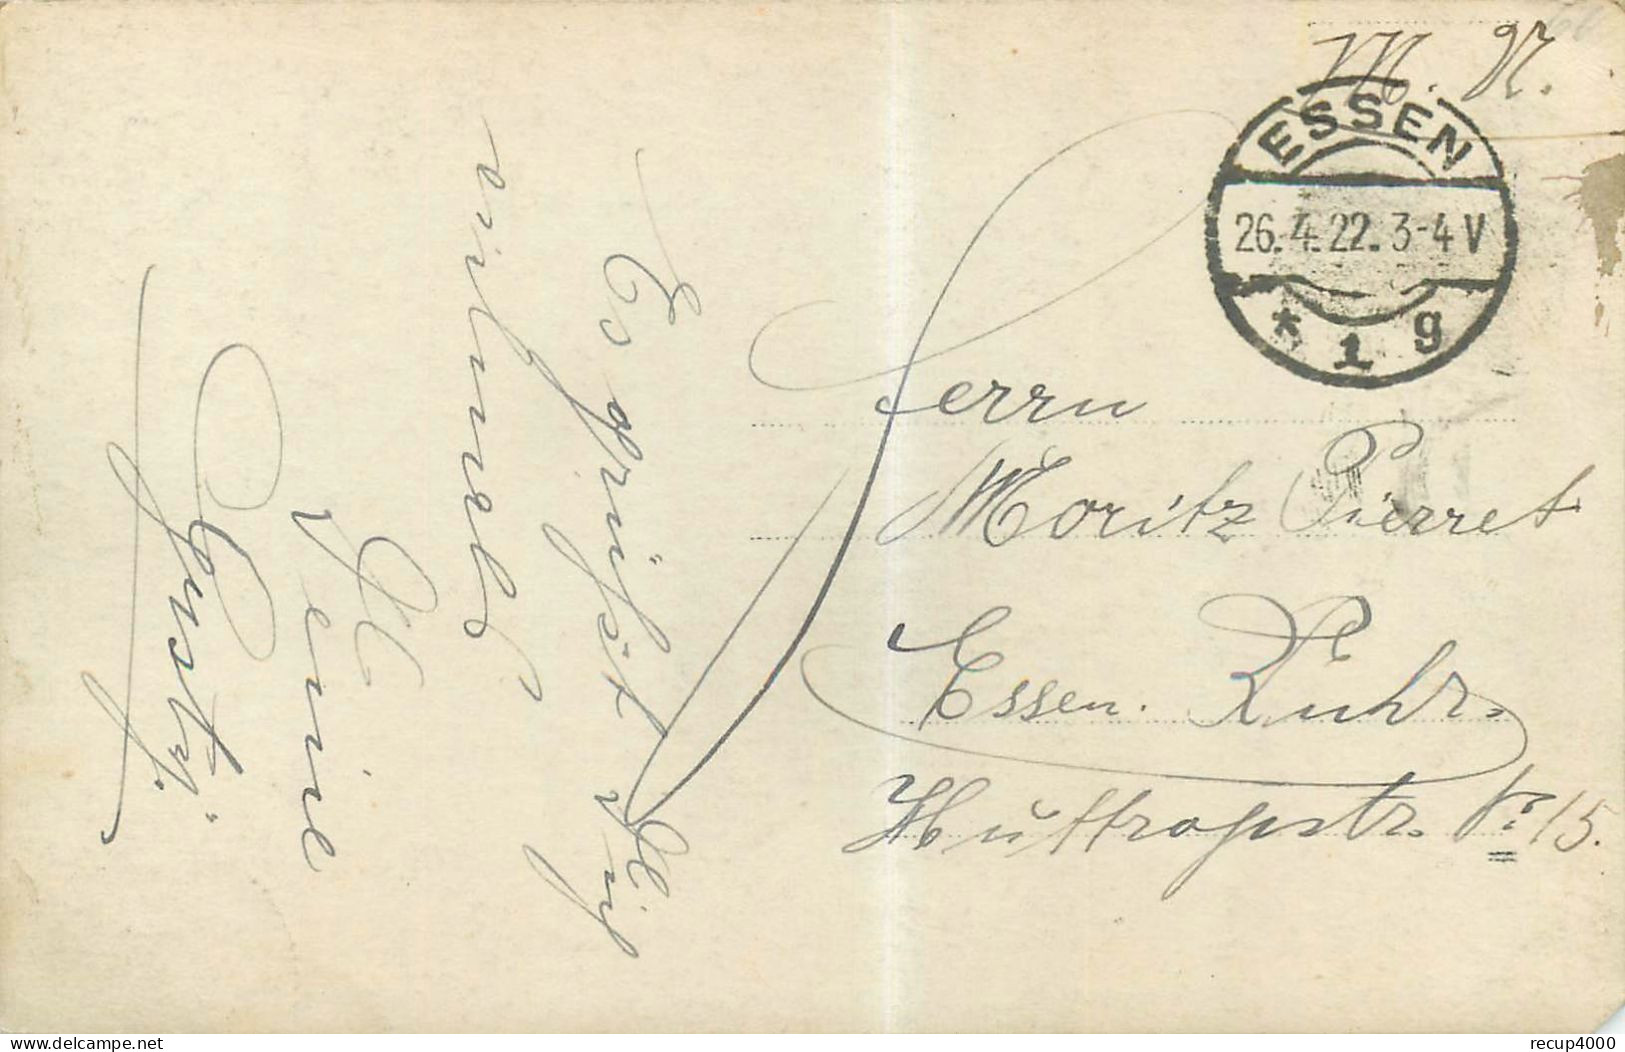 M. N.
ESSEN
26.4.22. 3-4 V
* 1 g
Herrn
Moritz Pierret
Essen. Ruhr.
Huttropstr. Nr 15.
Es grüßt Dich
vielmals
Deine
Gustij.
recup4000
www.delcampe.net